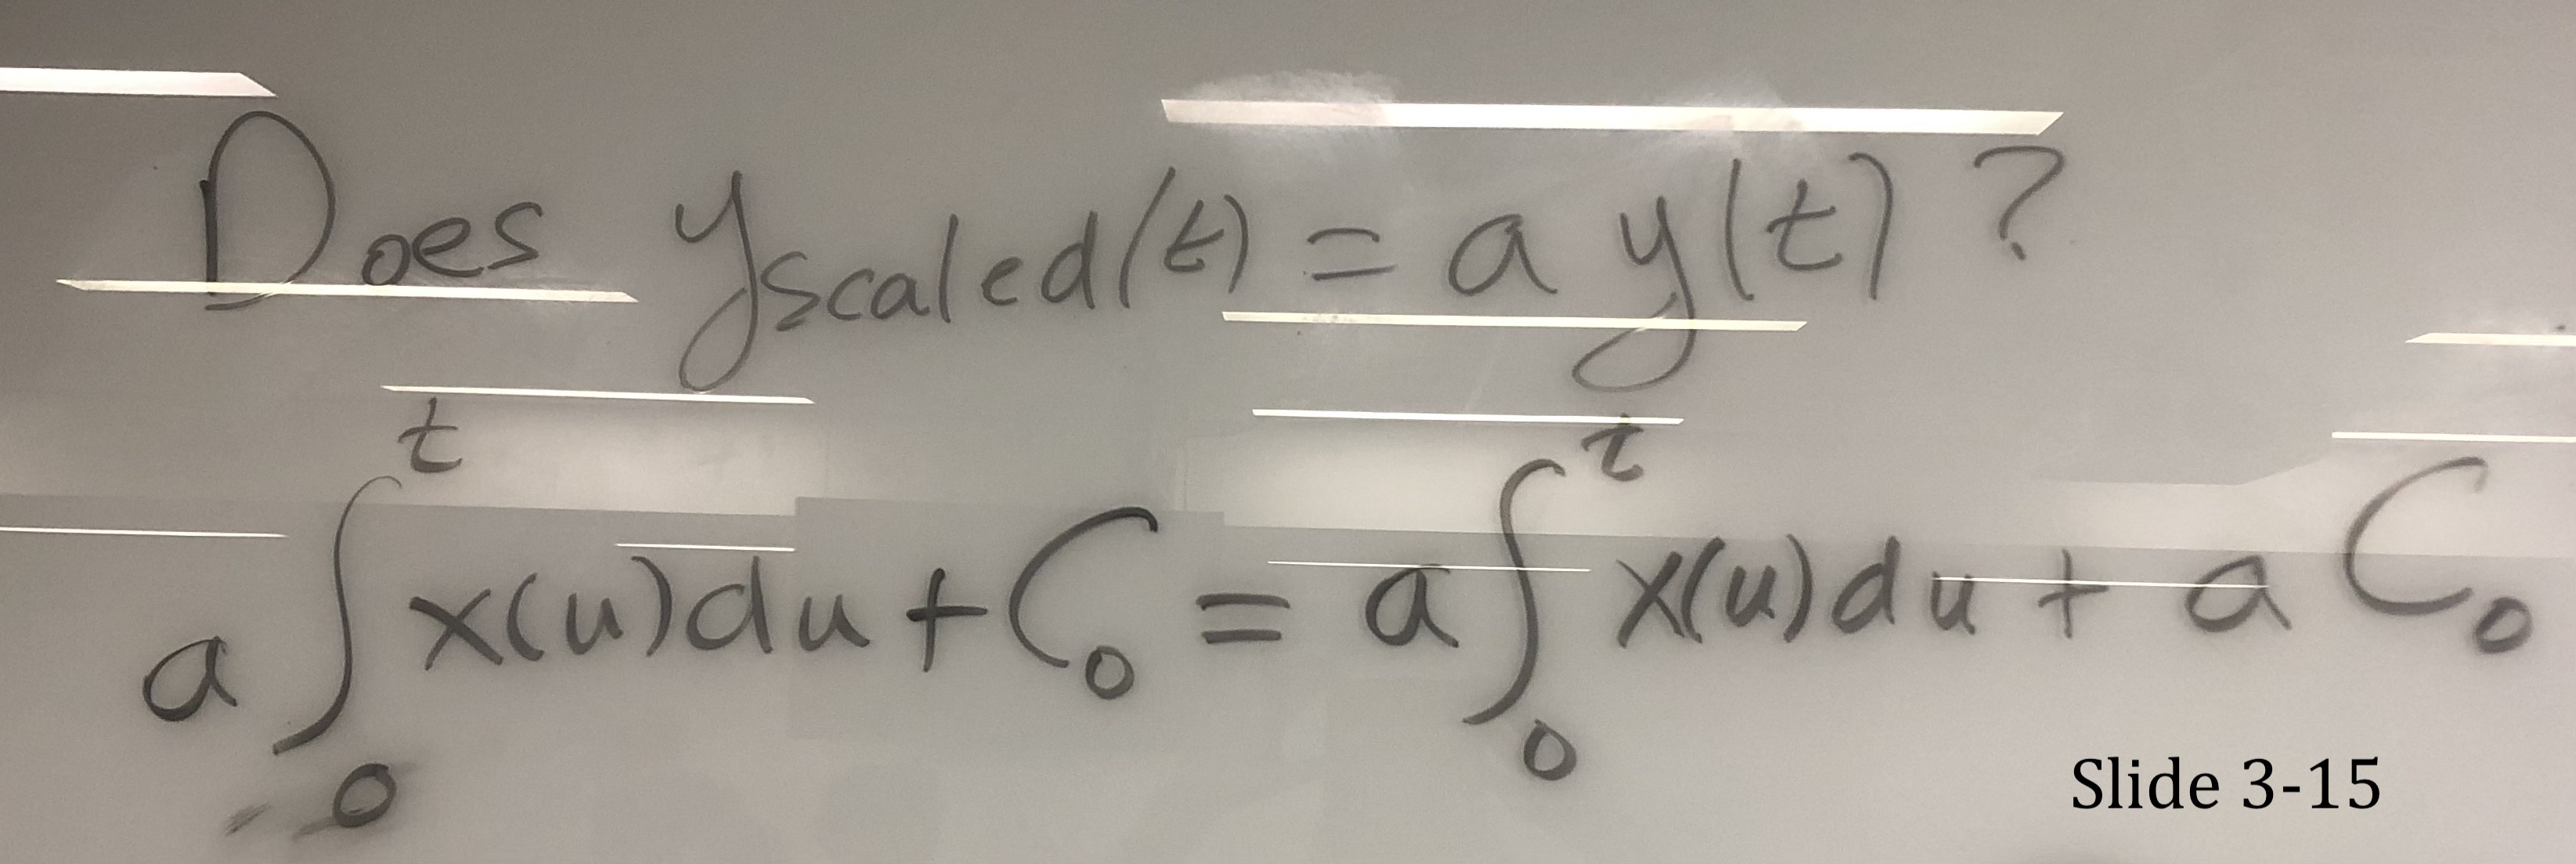 Does y_scaled(t) = a y(t) ?
a ∫_0^t x(u) du + C_0 = a ∫_0^t x(u) du + a C_0
Slide 3-15